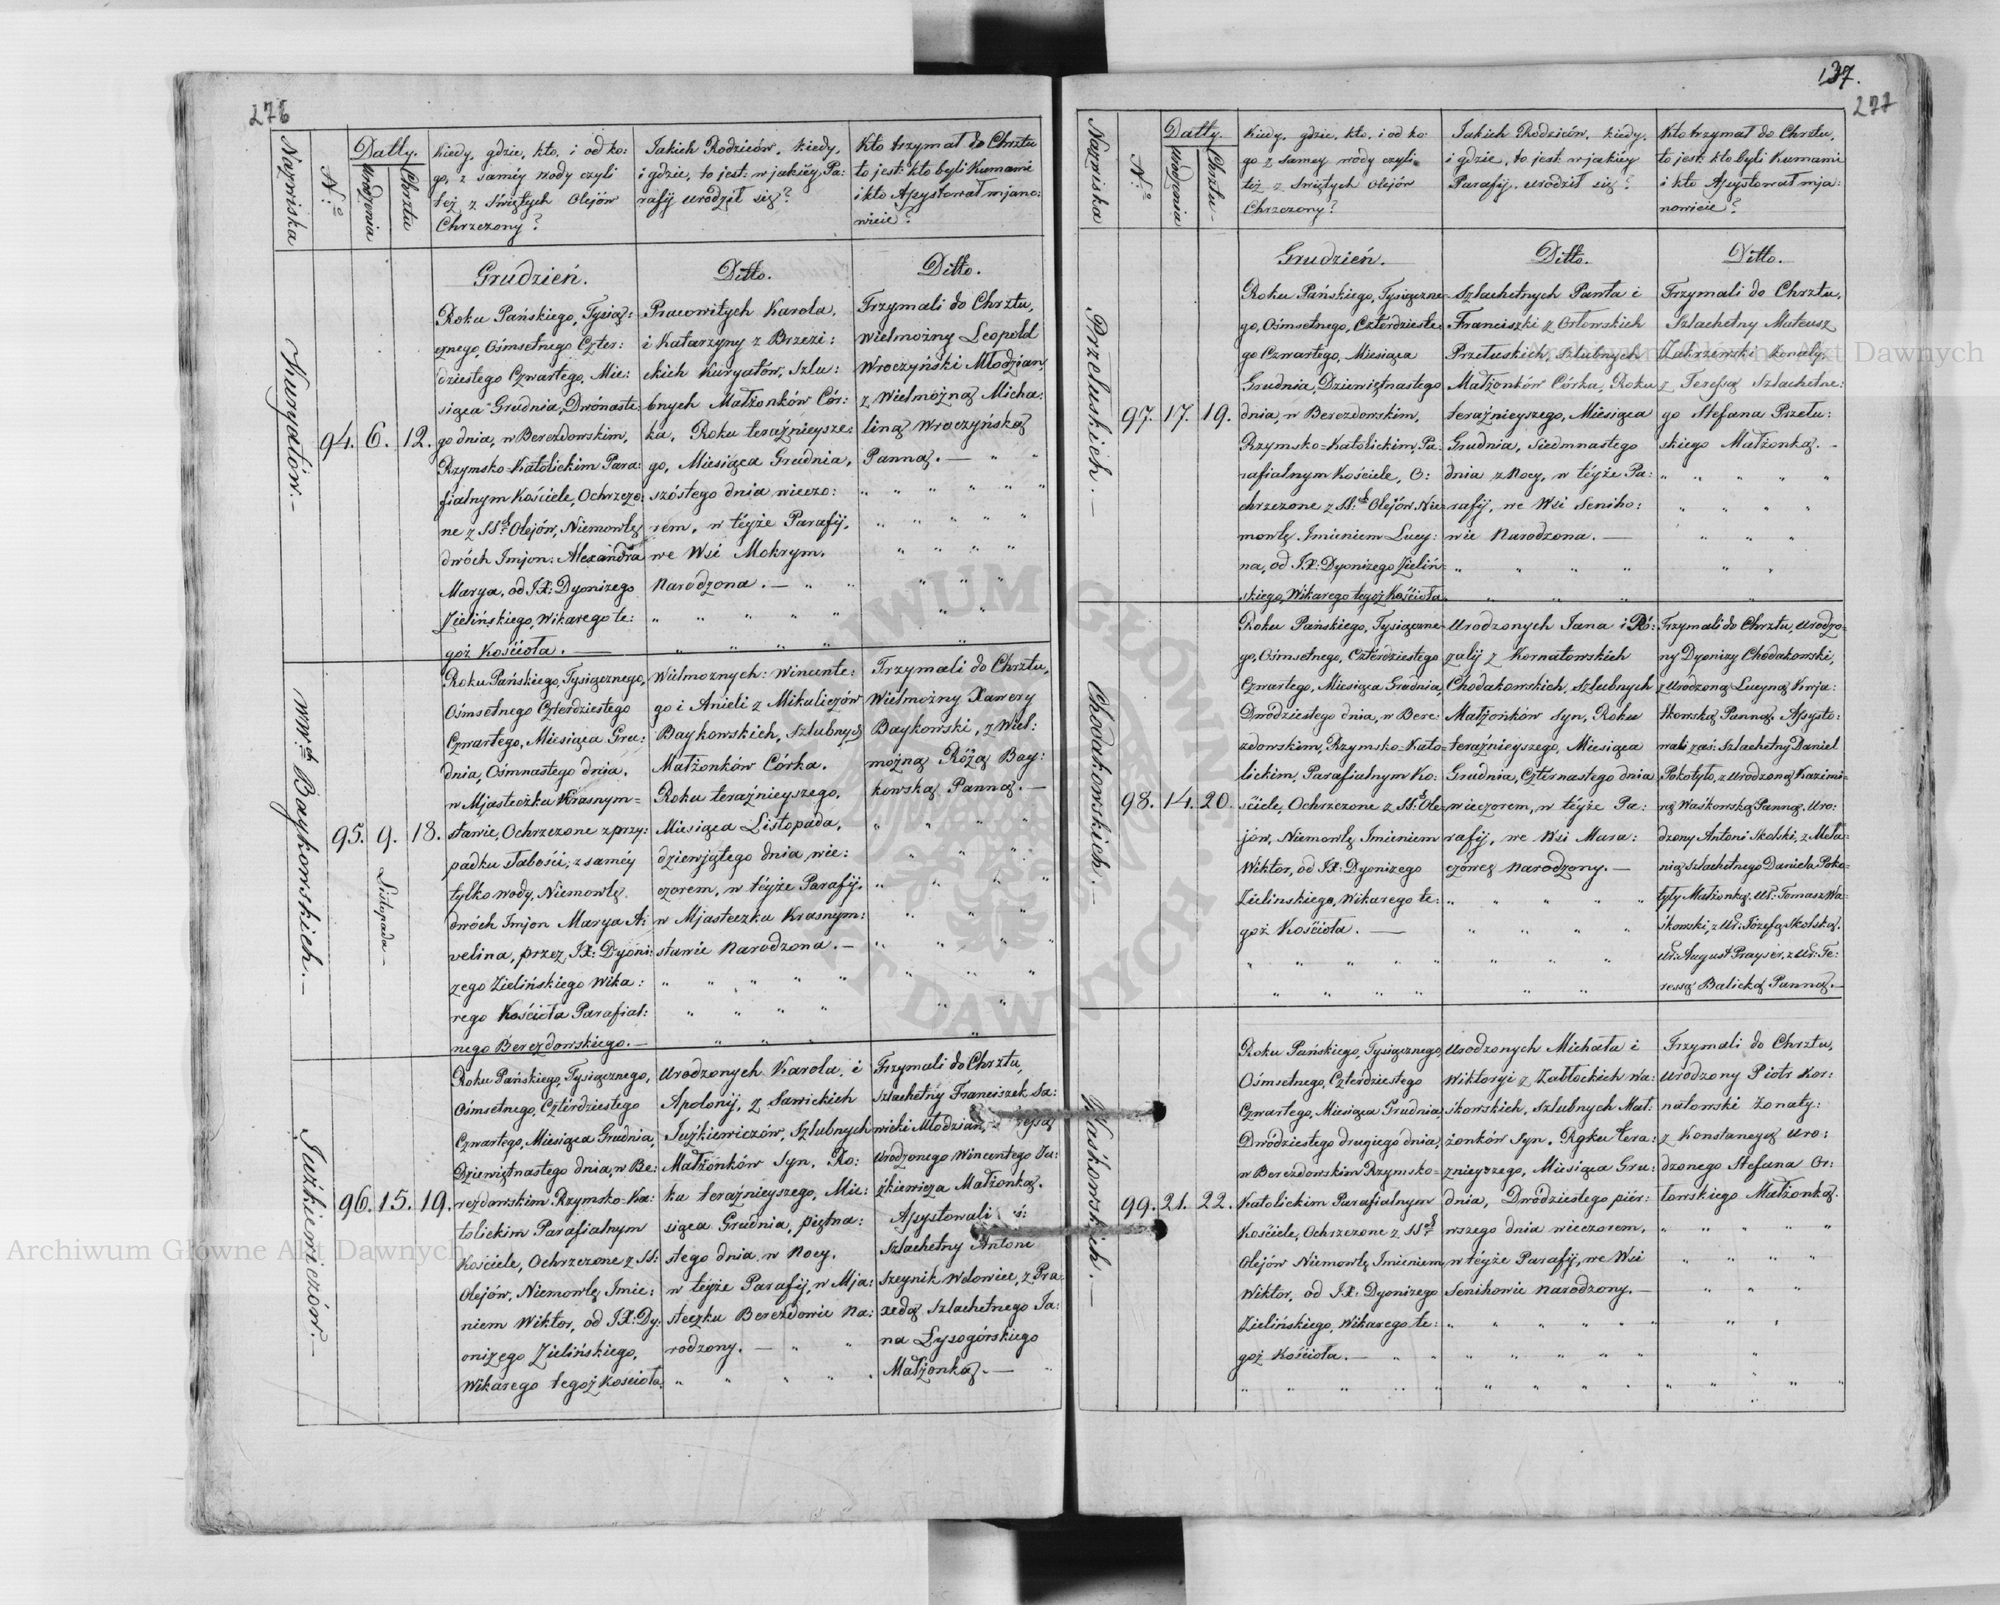 276
Nazwiska
N:o
Datty.
Urodzenia
Chrztu
Kiedy, gdzie, kto, i od ko:
go, z samey wody czyli
też z Świętych Olejów
Chrzczony?
Jakich Rodziców, kiedy,
i gdzie, to jest: w jakiéy Pa:
rafij urodził się?
Kto trzymał do Chrztu
to jest: kto byli Kumami
i kto Assystował mjano:
wicie?
Grudzień.
Ditto.
Ditto.
Kuryatów.—
94. 6. 12.
Roku Pańskiego, Tysią:
cznego, Ośmsetnego Czter:
dziestego Czwartego, Mie:
siąca Grudnia, Dwónaste:
go dnia, w Berezdowskim,
Rzymsko-Katolickim Para:
fialnym Kościele, Ochrzczo:
ne z SS: Olejów, Niemowlę
dwóch Imjon: Alexandra
Marya, od JX: Dyonizego
Zielińskiego, Wikarego te:
goż Kościoła.—
Pracowitych Karola,
i Katarzyny z Brzezi:
ckich Kuryatów, Szlu:
bnych Małżonków Cór:
ka, Roku teraźnieysze:
go, Miesiąca Grudnia,
szóstego dnia wieczo:
rem, w téyże Parafij,
we Wsi Mokrym,
Narodzona.—
Trzymali do Chrztu,
Wielmożny Leopold
Wroczyński Młodzian,
z Wielmożną Micha:
liną Wroczyńską
Panną.—
WW. Baykowskich.—
95. 9. 18.
Listopada—
Roku Pańskiego, Tysiącznego,
Ośmsetnego Czterdziestego
Czwartego, Miesiąca Gru:
dnia, Ośmnastego dnia,
w Mjasteczku Krasnym=
stawie, Ochrzczone z przy:
padku słabości, z saméy
tylko wody, Niemowlę
dwóch Imjon Marya A:
velina, przez JX: Dyoni:
zego Zielińskiego Wika:
rego Kościoła Parafial:
nego Berezdowskiego.—
Wielmożnych: Wincente:
go i Anieli z Mikuliczów
Baykowskich, Szlubnych
Małżonków Córka.
Roku teraźnieyszego,
Miesiąca Listopada,
dziewjątego dnia wie:
czorem, w téyże Parafij,
w Mjasteczku Krasnym:
stawie Narodzona.—
Trzymali do Chrztu,
Wielmożny Xawery
Baykowski, z Wiel:
możną Różą Bay:
kowską Panną.—
Juźkiewiczów.—
96. 15. 19.
Roku Pańskiego, Tysiącznego,
Ośmsetnego, Czterdziestego
Czwartego, Miesiąca Grudnia,
Dziewiętnastego dnia, w Be:
rezdowskim Rzymsko-Ka:
tolickim Parafialnym
Kościele, Ochrzczone z SS:
Olejów, Niemowlę Imie:
niem Wiktor, od JX: Dy:
onizego Zielińskiego,
Wikarego tegoż Kościoła.
Urodzonych Karola, i
Apolonij, z Sawickich
Juźkiewiczów, Szlubnych
Małżonków Syn, Ro:
ku teraźnieyszego, Mie:
siąca Grudnia, piętna:
stego dnia w Nocy,
w téyże Parafij, w Mja:
steczku Berezdowie Na:
rodzony.—
Trzymali do Chrztu,
Szlachetny Franciszek Sa:
wicki Młodzian,
Urodzonego Wincentego Ju:
źkiewicza Małżonką.
Assystowali
Szlachetny Antoni
Szeynik Wdowiec, z Pra:
xedą Szlachetnego Ja:
na Łysogórskiego
Małżonką.—
137.
277
Nazwiska
N:o
Datty.
Urodzenia
Chrztu
Kiedy, gdzie, kto, i od ko:
go z samey wody czyli
też z Świętych Olejów
Chrzczony?
Jakich Rodziców, kiedy,
i gdzie, to jest: w jakiéy
Parafij, urodził się?
Kto trzymał do Chrztu,
to jest: kto byli Kumami
i kto Assystował mja:
nowicie?
Grudzień.
Ditto.
Ditto.
Przełuskich.—
97. 17. 19.
Roku Pańskiego, Tysiączne:
go, Ośmsetnego, Czterdzieste:
go Czwartego, Miesiąca
Grudnia, Dziewiętnastego
dnia, w Berezdowskim,
Rzymsko=Katolickim, Pa:
rafialnym Kościele, O:
chrzczone z SS: Olejów Nie:
mowlę Imieniem Lucy:
na, od JX: Dyonizego Zieliń:
skiego, Wikarego tegoż Kościoła.
Szlachetnych Pawła i
Franciszki z Orłowskich
Przełuskich, Szlubnych
Małżonków Córka, Roku
teraźnieyszego, Miesiąca
Grudnia, Siedmnastego
dnia z Nocy, w téyże Pa:
rafij, we Wsi Seniho:
wie Narodzona.—
Trzymali do Chrztu,
Szlachetny Mateusz
Zakrzewski żonaty,
z Teressą Szlachetne:
go Stefana Przełu:
skiego Małżonką.—
Chodakowskich.—
98. 14. 20.
Roku Pańskiego, Tysiączne:
go, Ośmsetnego, Czterdziestego
Czwartego, Miesiąca Grudnia,
Dwódziestego dnia, w Bere:
zdowskim, Rzymsko=Kato:
lickim, Parafialnym Ko:
ściele, Ochrzczone z SS: Ole:
jów, Niemowlę Imieniem
Wiktor, od JX: Dyonizego
Zielinskiego, Wikarego te:
goż Kościoła.—
Urodzonych Jana i Ró:
zalij z Kornatowskich
Chodakowskich, Szlubnych
Małżonków Syn, Roku
teraźnieyszego, Miesiąca
Grudnia, Czternastego dnia
wieczorem, w téyże Pa:
rafij, we Wsi Mara:
czówcę Narodzony.—
Trzymali do Chrztu, Urodzo:
ny Dyonizy Chodakowski,
z Urodzoną Lucyną Knja:
tkowską Panną. Assysto:
wali zaś: Szlachetny Daniel
Pokotyło, z Urodzoną Kazimi:
rą Waśkowską Panną. Uro:
dzony Antoni Skolski, z Mela:
nią Szlachetnego Daniela Poko:
tyły Małżonką. Ur: Tomasz Wa:
śkowski, z Ur: Józefą Skolską.
Ur: August Prayser, z Ur: Te:
ressą Balicką Panną.—
Waśkowskich.—
99. 21. 22.
Roku Pańskiego, Tysiącznego,
Ośmsetnego, Czterdziestego
Czwartego, Miesiąca Grudnia
Dwódziestego drugiego dnia,
w Berezdowskim Rzymsko=
Katolickim Parafialnym
Kościele, Ochrzczone z SS:
Olejów Niemowlę Imieniem
Wiktor, od JX: Dyonizego
Zielińskiego, Wikarego te:
goż Kościoła.—
Urodzonych Michała i
Wiktoryi z Zabłockich Wa:
śkowskich, Szlubnych Mał:
żonków Syn, Roku tera:
źnieyszego, Miesiąca Gru:
dnia, Dwódziestego piér:
wszego dnia wieczorem,
w téyże Parafij, we Wsi
Senihowie Narodzony.—
Trzymali do Chrztu,
Urodzony Piotr Kor:
natowski żonaty:
z Konstancyą Uro:
dzonego Stefana Or:
łowskiego Małżonką.
Archiwum Główne Akt Dawnych
Archiwum Główne Akt Dawnych
ARCHIWUM GŁÓWNE AKT DAWNYCH